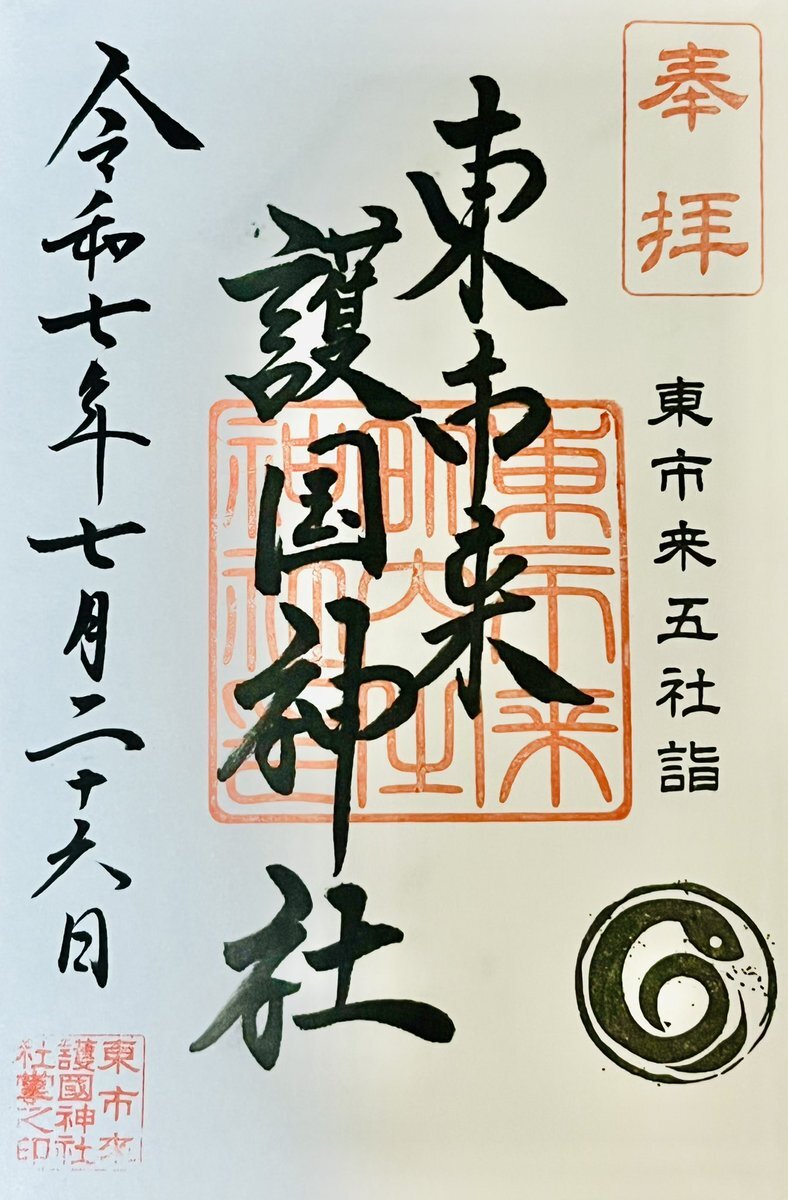 奉拝
東市来五社詣
東市来
護国神社
令和七年七月二十六日
東市来
東市来
護國神社